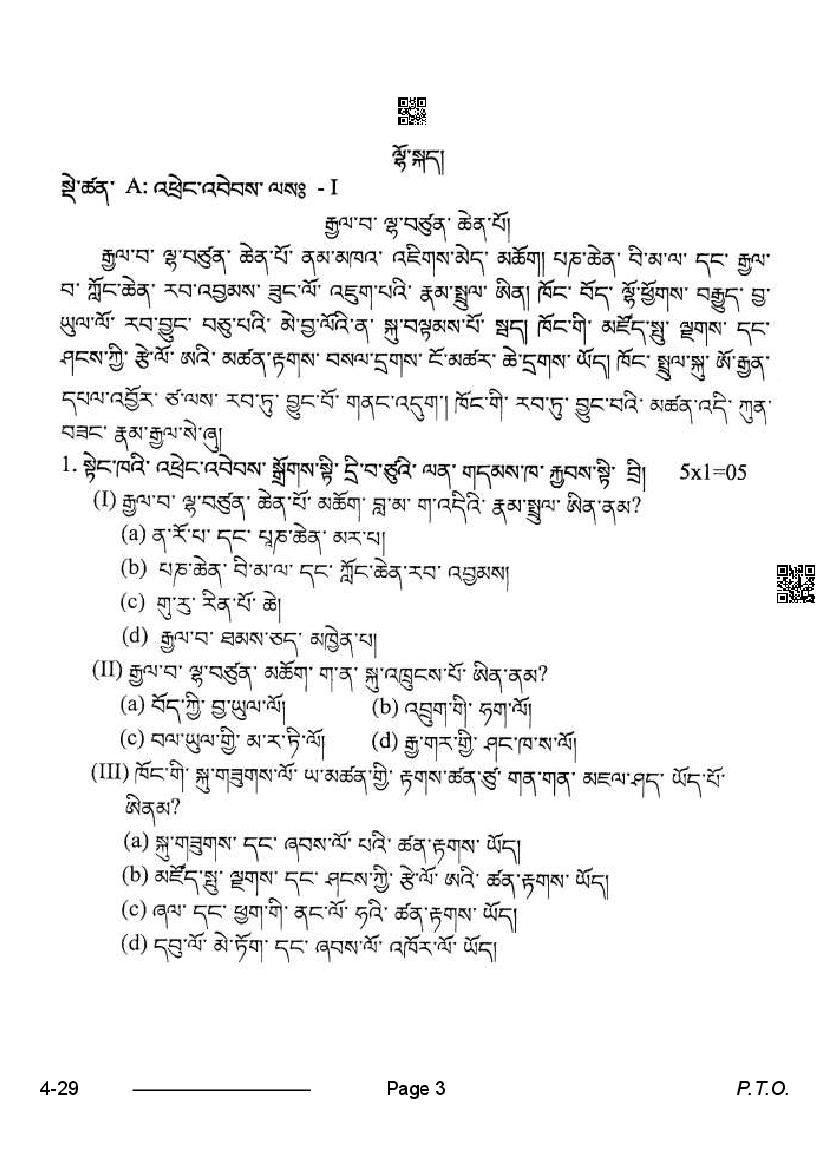 ལྷོ་སྐད།
སྡེ་ཚན་ A: འཕྲེང་འབེབས་ ལསཿ - I
རྒྱལ་བ་ ལྷ་བཙུན་ ཆེན་པོ།
རྒྱལ་བ་ ལྷ་བཙུན་ ཆེན་པོ་ ནམ་མཁའ་ འཇིགས་མེད་ མཆོག། པཎ་ཆེན་ བི་མ་ལ་ དང་ རྒྱལ་
བ་ ཀློང་ཆེན་ རབ་འབྱམས་ ཟུང་ལོ་ འཇུག་པའི་ རྣམ་སྤྲུལ་ ཨིན། ཁོང་ བོད་ ལྷོ་ཕྱོགས་ བརྒྱུད་ བྱ་
ཡུལ་ལོ་ རབ་བྱུང་ བཅུ་པའི་ མེ་བྱ་ལོའི་ན་ སྐུ་བལྟམས་པོ་ སྦད། ཁོང་གི་ མཛོད་སྤུ་ ལྗགས་ དང་
ཤངས་ཀྱི་ རྩེ་ལོ་ ཨའི་ མཚན་རྟགས་ བསལ་དྲགས་ ངོ་མཚར་ ཆེ་དྲགས་ ཡོད། ཁོང་ སྤྲུལ་སྐུ་ ཨོ་རྒྱན་
དཔལ་འབྱོར་ ཙ་ལས་ རབ་ཏུ་ བྱུང་བོ་ གནང་འདུག།ཁོང་གི་ རབ་ཏུ་ བྱུང་བའི་ མཚན་འདི་ ཀུན་
བཟང་ རྣམ་རྒྱལ་སེ་ཞུ།
1. སྟེང་ཁའི་ འཕྲེང་འབེབས་ སྒྲོགས་སྟི་ དྲི་བ་ཙུའི་ ལན་ གདམས་ཁ་ རྐྱབས་སྟི་ བྲི། 5x1=05
(I) རྒྱལ་བ་ ལྷ་བཙུན་ ཆེན་པོ་ མཆོག་ བླ་མ་ ག་འདིའི་ རྣམ་སྤྲུལ་ ཨིན་ནམ?
(a) ན་རོ་པ་ དང་ པཱཎ་ཆེན་ མར་པ།
(b) པཎ་ཆེན་ བི་མ་ལ་ དང་ ཀློང་ཆེན་རབ་ འབྱམས།
(c) གུ་རུ་ རིན་པོ་ ཆེ།
(d) རྒྱལ་བ་ ཐམས་ཅད་ མཁྱེན་པ།
(II) རྒྱལ་བ་ ལྷ་བཙུན་ མཆོག་ ག་ན་ སྐུ་འཁྲུངས་པོ་ ཨིན་ནམ?
(a) བོད་ཀྱི་ བྱ་ཡུལ་ལོ། (b) འབྲུག་གི་ ཧག་ལོ།
(c) བལ་ཡུལ་གྱི་ མ་ར་ཏི་ལོ། (d) རྒྱ་གར་གྱི་ ཤང་ཁ་ས་ལོ།
(III) ཁོང་གི་ སྐུ་གཟུགས་ལོ་ ཡ་མཚན་གྱི་ རྟགས་ཚན་ཙུ་ གན་གན་ མཇལ་ཤད་ ཡོད་པོ་
ཨིནམ?
(a) སྐུ་གཟུགས་ དང་ ཞབས་ལོ་ པའི་ ཚན་རྟགས་ ཡོད།
(b) མཛོད་སྤུ་ ལྗགས་ དང་ ཤངས་ཀྱི་ རྩེ་ལོ་ ཨའི་ ཚན་རྟགས་ ཡོད།
(c) ཞལ་ དང་ ཕྱག་གི་ ནང་ལོ་ ཧའི་ ཚན་རྟགས་ ཡོད།
(d) དབུ་ལོ་ མེ་ཏོག་ དང་ ཞབས་ལོ་ འཁོར་ལོ་ ཡོད།
4-29 Page 3 P.T.O.